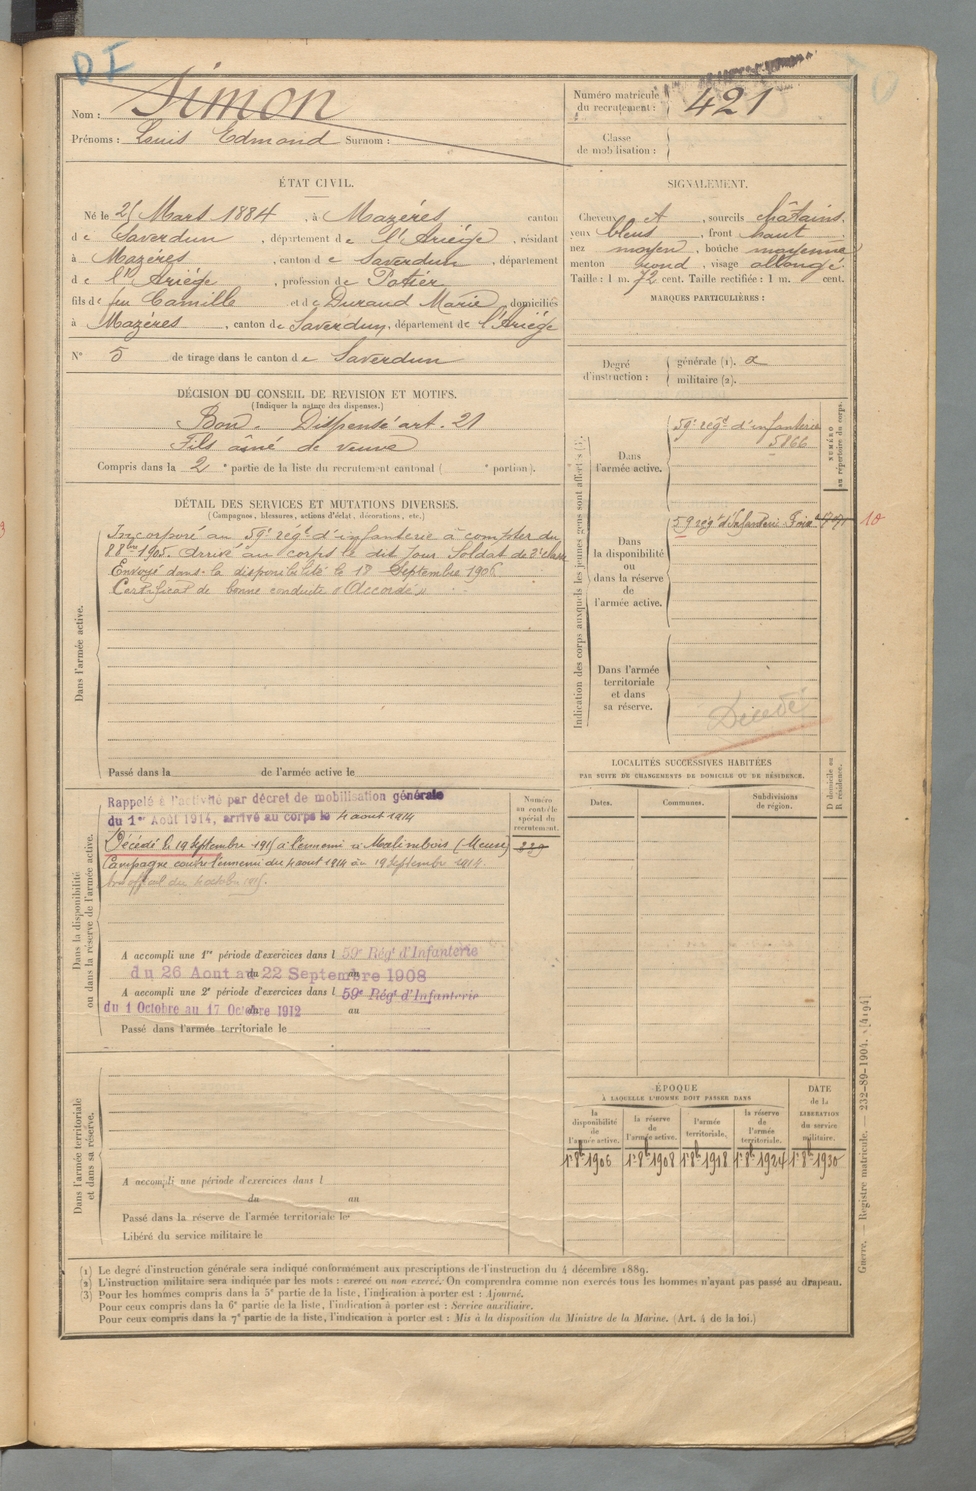 DI
Nom : Simon
Prénoms : Louis Edmond Surnom :
Numéro matricule du recrutement : 421
Classe de mobilisation :
ÉTAT CIVIL.
Né le Mars 1884, à Mazéres canton
de Saverdun, département de l'Ariége, résidant
à Mazéres, canton de Saverdun, département
de l'Ariége, profession de Potier
fils de feu Camille et de Durand Marie, domiciliés
à Mazéres, canton de Saverdun, département de l'Ariége
N° 5 de tirage dans le canton de Saverdun
SIGNALEMENT.
Cheveux et, sourcils châtains.
yeux bleus, front haut
nez moyen, bouche moyenne
menton rond, visage allongé.
Taille : 1 m. 72 cent. Taille rectifiée : 1 m. cent.
MARQUES PARTICULIÈRES :
Degré d'instruction : générale (1). 2
militaire (2).
DÉCISION DU CONSEIL DE REVISION ET MOTIFS.
(Indiquer la nature des dispenses.)
Bon. Dispensé art. 21
Fils aîné de veuve
Compris dans la 2e partie de la liste du recrutement cantonal ( e portion).
DÉTAIL DES SERVICES ET MUTATIONS DIVERSES.
(Campagnes, blessures, actions d'éclat, décorations, etc.)
Dans l'armée active.
Incorporé au 59e régt d'infanterie à compter du
8 8bre 1905. Arrivé au corps le dit jour. Soldat de 2e classe
Envoyé dans la disponibilité le 17 Septembre 1906
Certificat de bonne conduite « Accordé »
Passé dans la de l'armée active le
Indication des corps auxquels les jeunes gens sont affectés (3).
NUMÉRO au répertoire du corps.
Dans l'armée active.
59e régt d'infanterie
5866
Dans la disponibilité ou dans la réserve de l'armée active.
59 régt d'Infanterie Foix
10
Dans l'armée territoriale et dans sa réserve.
Décédé
LOCALITÉS SUCCESSIVES HABITÉES
PAR SUITE DE CHANGEMENTS DE DOMICILE OU DE RÉSIDENCE.
D domicile ou R résidence.
Dates. Communes. Subdivisions de région.
Dans la disponibilité ou dans la réserve de l'armée active.
Numéro au contrôle spécial du recrutement.
Rappelé à l'activité par décret de mobilisation générale
du 1er Août 1914, arrivé au corps le 4 août 1914
Décédé le 19 septembre à l'ennemi à Malimbois (Meuse)
Campagne contre l'ennemi du 4 août 1914 au 19 septembre 1914.
A accompli une 1re période d'exercices dans l 59e Régt d'Infanterie
du 26 Aout au 22 Septembre 1908
A accompli une 2e période d'exercices dans l 59e Régt d'Infanterie
du 1 Octobre au 17 Octobre 1912 au
Passé dans l'armée territoriale le
Dans l'armée territoriale et dans sa réserve.
A accompli une période d'exercices dans l
du au
Passé dans la réserve de l'armée territoriale le
Libéré du service militaire le
ÉPOQUE
À LAQUELLE L'HOMME DOIT PASSER DANS
la disponibilité de l'armée active.
la réserve de l'armée active.
l'armée territoriale.
la réserve de l'armée territoriale.
DATE de la LIBÉRATION du service militaire.
1er 8bre 1906 1er 8bre 1908 1er 8bre 1918 1er 8bre 1924 1er 8bre 1930
(1) Le degré d'instruction générale sera indiqué conformément aux prescriptions de l'instruction du 4 décembre 1889.
(2) L'instruction militaire sera indiquée par les mots : exercé ou non exercé. On comprendra comme non exercés tous les hommes n'ayant pas passé au drapeau.
(3) Pour les hommes compris dans la 5e partie de la liste, l'indication à porter est : Ajourné.
Pour ceux compris dans la 6e partie de la liste, l'indication à porter est : Service auxiliaire.
Pour ceux compris dans la 7e partie de la liste, l'indication à porter est : Mis à la disposition du Ministre de la Marine. (Art. 4 de la loi.)
Guerre. — Registre matricule. — 232-89-1904. [4194]